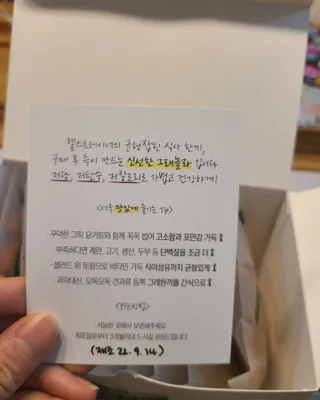 헬스트레이너의 균형잡힌 식사 한끼,
구매 후 즉시 만드는 신선한 그래놀라 입니다
저당, 저탄수, 저칼로리로 가볍고 건강하게!
<더욱 맛있게 즐기는 Tip>
· 꾸덕한 그릭 요거트와 함께 꼭꼭 씹어 고소함과 포만감 가득
· 부족하다면 계란, 고기, 생선, 두부 등 단백질을 조금 더
· 샐러드 위 토핑으로 비타민 가득 식이섬유까지 균형있게
· 과자대신, 오독오독 견과류 듬뿍 그래한끼를 간식으로
<보관방법>
· 서늘한 곳에서 보관해주세요
제조일로부터 3개월이내 드시길 권장드립니다
(제조 22. 9. 14)